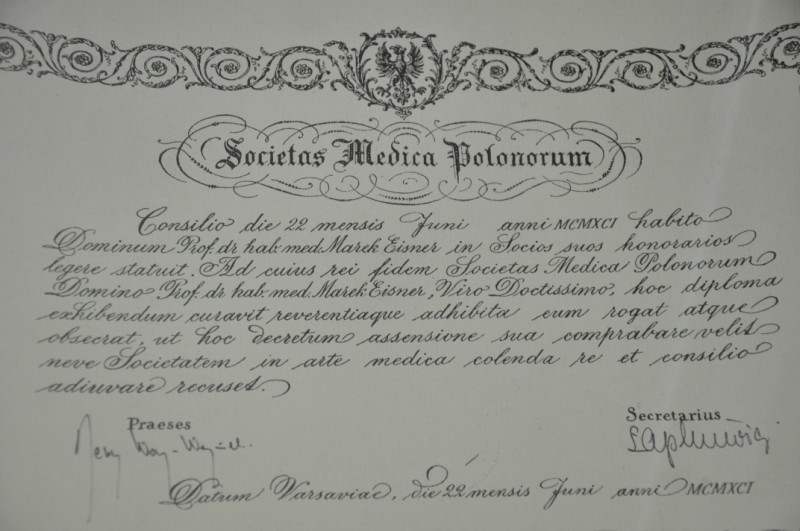 Societas Medica Polonorum
Consilio die 22 mensis Juni anni MCMXCI habito
Dominum Prof. dr hab. med. Marek Eisner in Socios suos honorarios
legere statuit. Ad cuius rei fidem Societas Medica Polonorum
Domino Prof. dr hab. med. Marek Eisner, Viro Doctissimo, hoc diploma
exhibendum curavit reverentiaque adhibita eum rogat atque
obsecrat, ut hoc decretum assensione sua comprabare velit
neve Societatem in arte medica colenda re et consilio
adiuvare recuset.
Praeses
Secretarius
Datum Varsaviae, die 22 mensis Juni anni MCMXCI